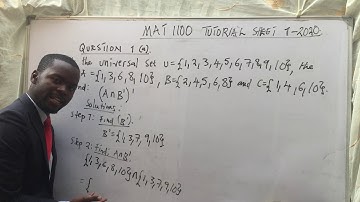 MAT 1100 TUTORIAL SHEET 1-2020
QUESTION 1 (a).
the universal set U = {1, 2, 3, 4, 5, 6, 7, 8, 9, 10}, the
A = {1, 3, 6, 8, 10}, B = {2, 4, 5, 6, 8} and C = {1, 4, 6, 10}.
find: (A∩B')'
Solutions:
Step 1: Find (B').
B' = {1, 3, 7, 9, 10}
Step 2: Find A∩B'
{1, 3, 6, 8, 10} ∩ {1, 3, 7, 9, 10}
= {